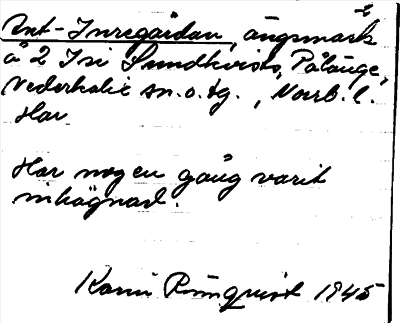 Ant-Inregårdan, ängsmark
å 2 Isi Sundkvists, Påläng,
Nederkalix sn. o. tg., Norrb. l.
Har
Har nog en gång varit
inhägnad.
Karin Rönnquist 1945